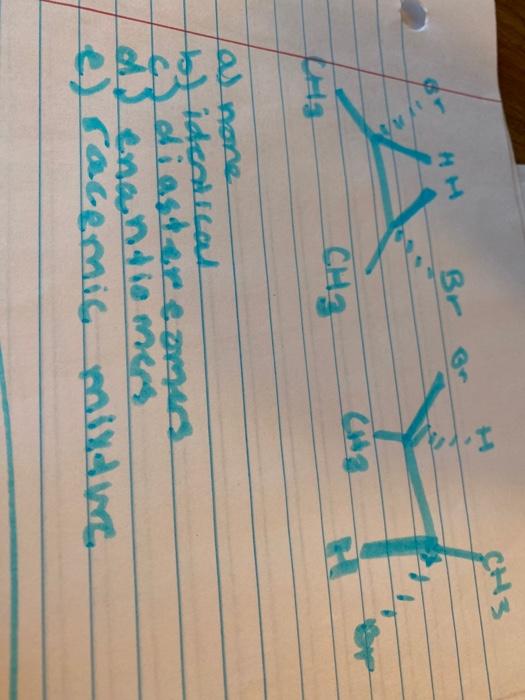 Br H H Br Br H CH3
CH3 CH3 CH3 H Br
a) none
b) identical
c) diastereomers
d) enantiomers
e) racemic mixture